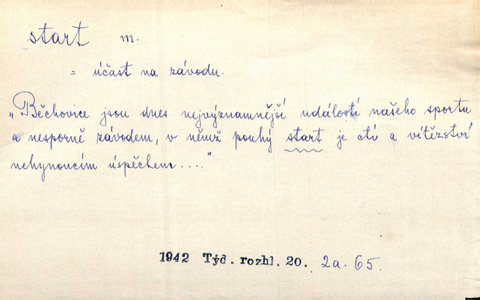 start m.
= účast na závodu.
„Běchovice jsou dnes nejvýznamnější událostí našeho sportu
a nesporně závodem, v němž pouhý start je ctí a vítězství
nehynoucím úspěchem...."
1942 Týd. rozhl. 20. 2a. 65.